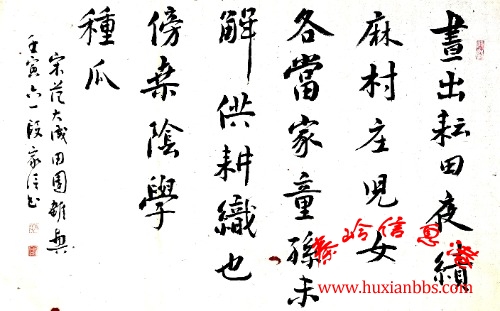 晝出耘田夜績
麻村庄児女
各當家童孫未
解供耕織也
傍桑陰學
種瓜
宋范大成田園雜興
壬寅六一段家信书
秦岭信息港
www.huxianbbs.com